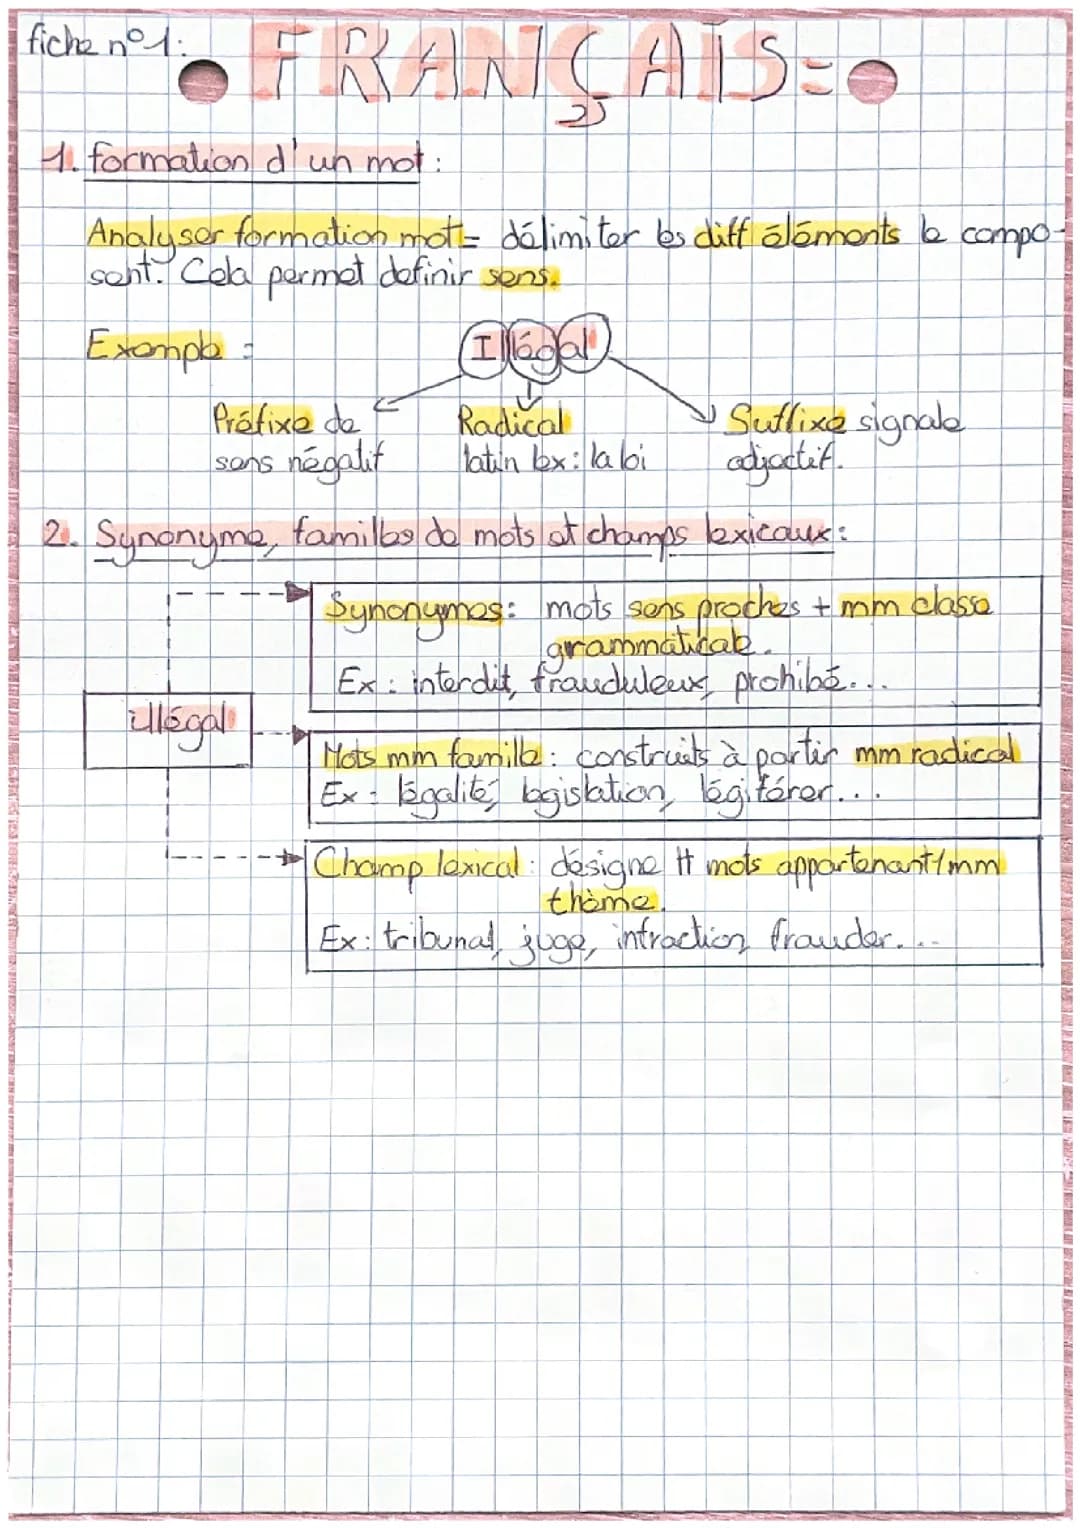 fiche n°1:
FRANÇAIS:
1. formation d'un mot:
Analyser formation mot = délimiter les diff éléments le compo-
sent. Cela permet definir sens.
Exemple:
Illégal
Préfixe de
sens négatif
Radical
latin lex: la loi
Suffixe signale
adjectif.
2. Synonyme, familles de mots et champs lexicaux:
Synonymes: mots sens proches + mm classe
grammaticale.
Ex: interdit, frauduleux, prohibé...
illégal
Mots mm famille: construits à partir mm radical
Ex: légalité, législation, légiférer...
Champ lexical: désigne tt mots appartenant/mm
thème.
Ex: tribunal, juge, infraction, frauder...